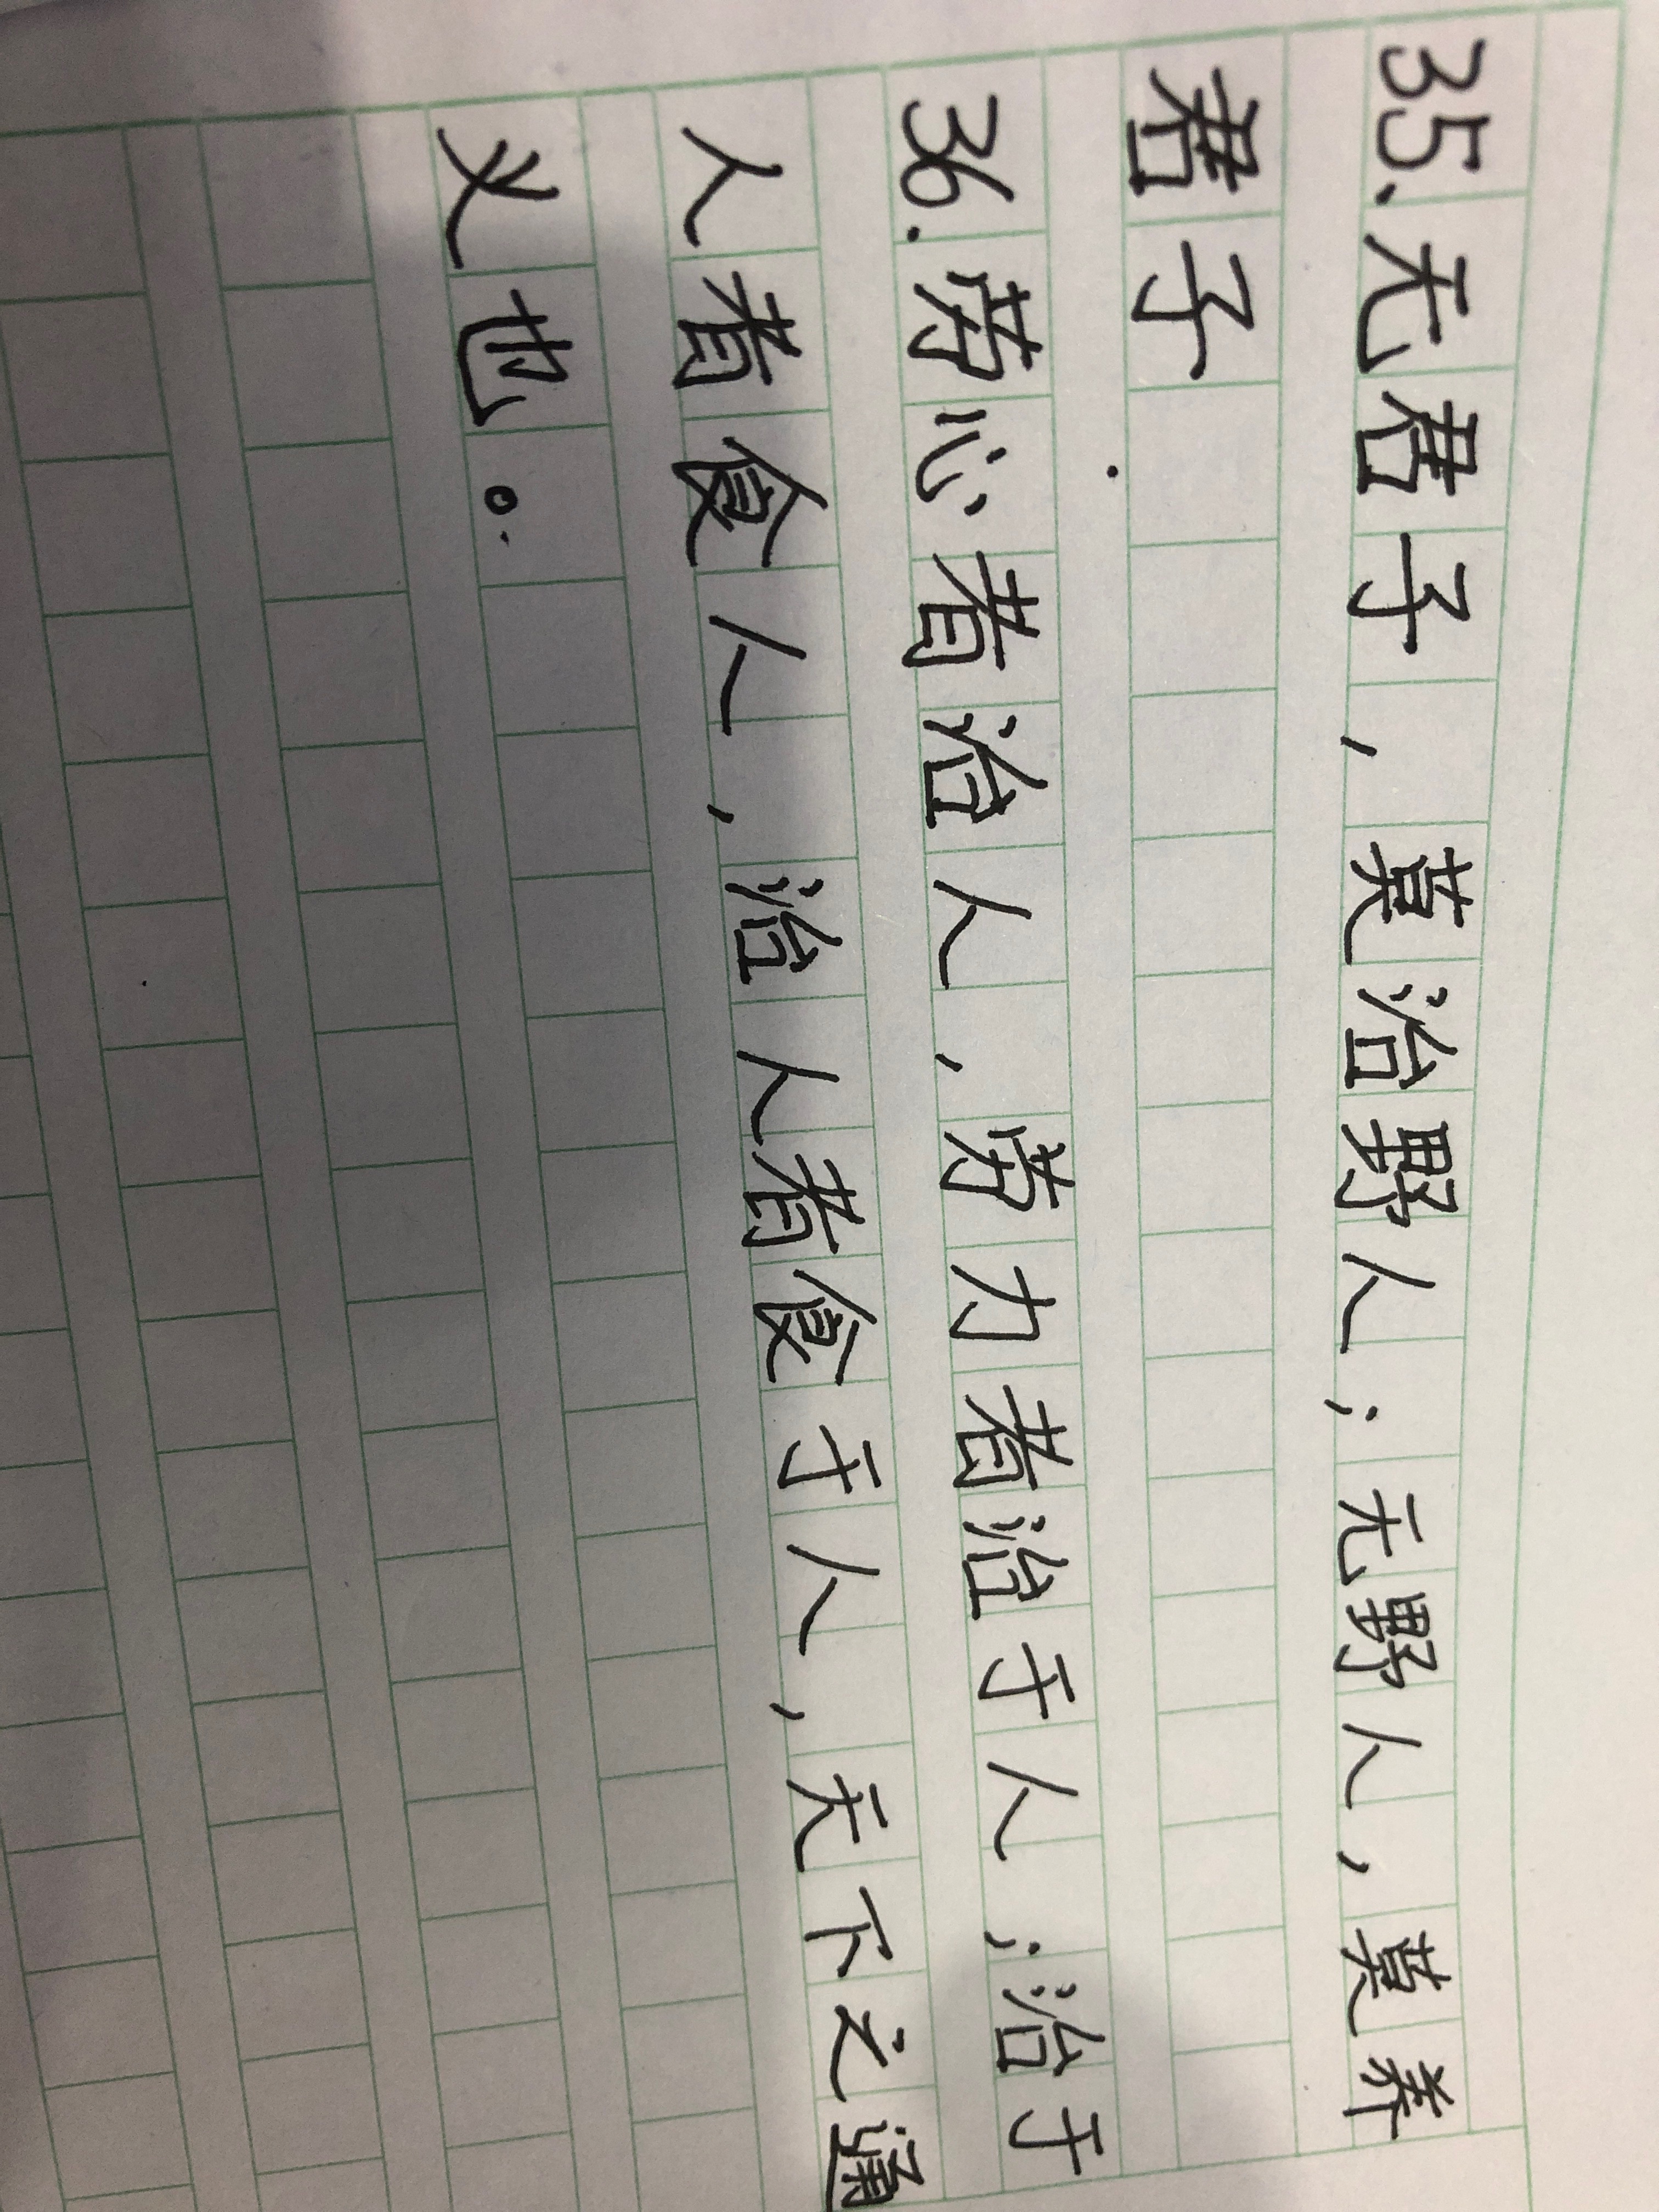 35.无君子,莫治野人;无野人,莫养
君子
36.劳心者治人,劳力者治于人;治于
人者食人,治人者食于人,天下之通
义也。